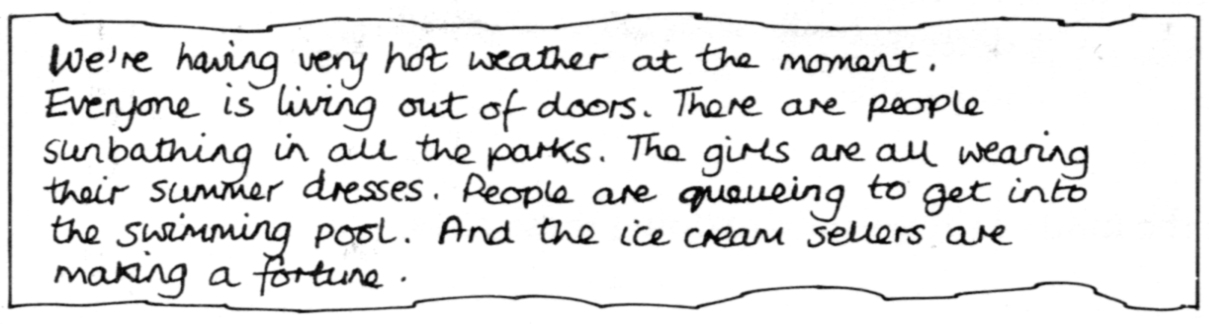 We're having very hot weather at the moment.
Everyone is living out of doors. There are people
sunbathing in all the parks. The girls are all wearing
their summer dresses. People are queueing to get into
the swimming pool. And the ice cream sellers are
making a fortune.